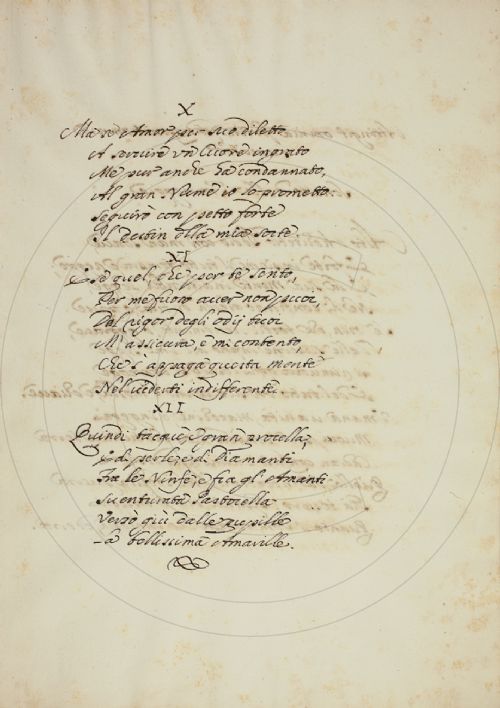 X
Ma se Amor per suo diletto
A servire un Cuore ingrato
Me pur anche ha condannato,
Al gran Nume io lo prometto:
Seguirò con petto forte
Il destin della mia sorte.
XI
E se quel, che per te sento,
Per me fuoco aver non puoi,
Dal rigor degli odij tuoi
M'assicura, e mi contento,
Che s'appaga questa mente
Nel vederti indifferente.
XII
Quindi tacque, e gran procella,
E di perle, e di Diamanti
Fra le Ninfe, e fra gl'Amanti
Sventurata Pastorella
Versò giù dalle pupille
La bellissima Amarille.